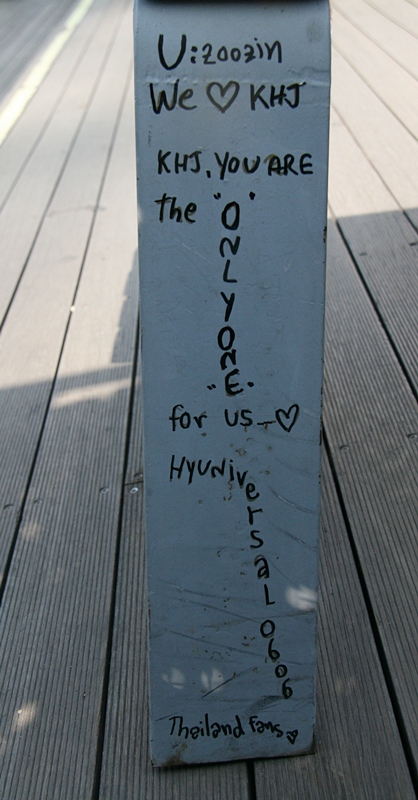 U:zoozin
We ♡ KHJ
KHJ, YOU ARE
the "ONLY ONE"
for US ♡
HYUNiversal 0606
Thailand Fans ♡